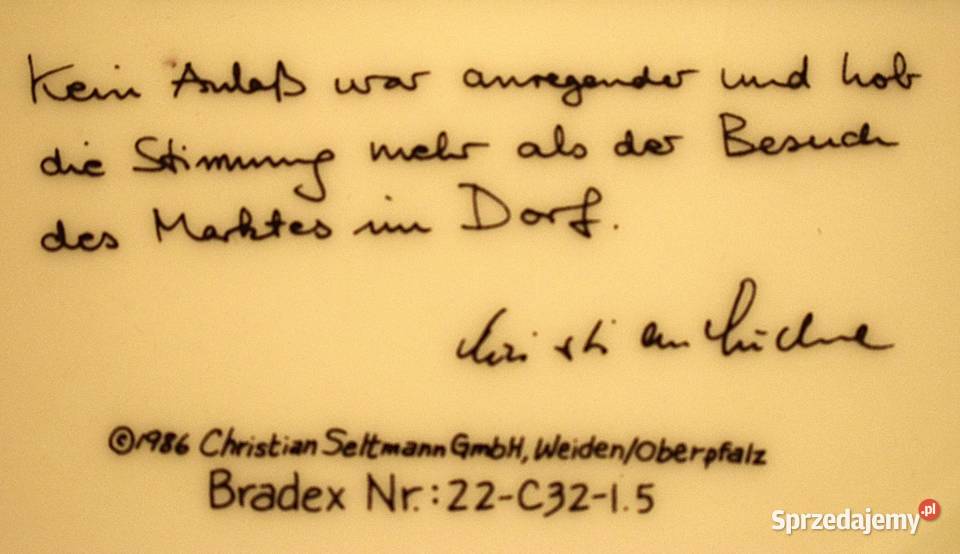 Kein Anlaß war anregender und hob
die Stimmung mehr als der Besuch
des Marktes im Dorf.
Christian Lückel
©1986 Christian Seltmann GmbH, Weiden/Oberpfalz
Bradex Nr.: 22-C32-1.5
Sprzedajemy.pl